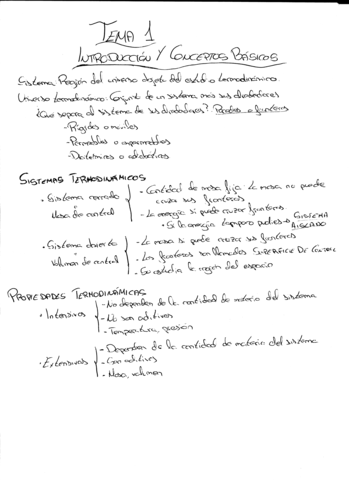 TEMA 1
INTRODUCCIÓN Y CONCEPTOS BÁSICOS
Sistema: Región del universo objeto del estudio termodinámico.
Universo termodinámico: Conjunto de un sistema más sus alrededores
¿Que separa al sistema de sus alrededores? Paredes o fronteras
-Rígidas o móviles
-Permeables o impermeables
-Diatérmanas o adiabáticas
SISTEMAS TERMODINÁMICOS
• Sistema cerrado
o
Masa de control
- Cantidad de masa fija. La masa no puede
cruzar sus fronteras
- La energía si puede cruzar fronteras
• Si la energía tampoco puede → SISTEMA
AISLADO
• Sistema abierto
o
Volumen de control
- La masa si puede cruzar sus fronteras
- Las fronteras son llamadas SUPERFICIE DE CONTROL
- Se estudia la región del espacio
PROPIEDADES TERMODINÁMICAS
• Intensivas
- No dependen de la cantidad de materia del sistema
- No son aditivas
- Temperatura, presión
• Extensivas
- Dependen de la cantidad de materia del sistema
- Son aditivas
- Masa, volumen